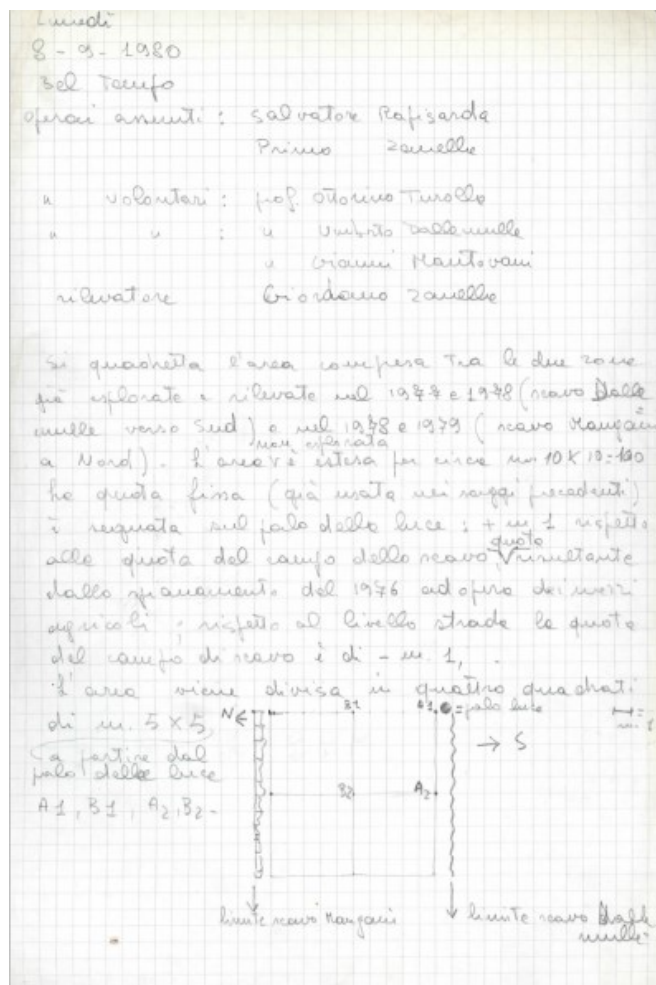 Lunedì
8 - 9 - 1980
Bel Tempo
operai assunti : Salvatore Rapisarda
Primo Zanella
" volontari : prof. Ottorino Turolla
" " : " Umberto Dallemulle
" Gianni Mantovani
rilevatore Giordano Zanella
Si quadretta l'area compresa tra le due zone
già esplorate e rilevate nel 1977 e 1978 (scavo Dalle
mulle verso Sud) e nel 1978 e 1979 (scavo Mangani
non esplorata
a Nord). L'area è estesa per circa m 10 x 10 = 100
La quota fissa (già usata nei saggi precedenti)
è segnata sul palo della luce : + m. 1 rispetto
alla quota del campo dello scavo, quota risultante
dallo spianamento del 1976 ad opera dei mezzi
agricoli ; rispetto al livello strada la quota
del campo di scavo è di - m. 1, .
L'area viene divisa in quattro quadrati
di m. 5 x 5
(a partire dal
palo della luce
A1, B1, A2, B2 -
N B1 A1 = palo luce m. 1
S
B2 A2
limite scavo Mangani limite scavo Dalle
mulle